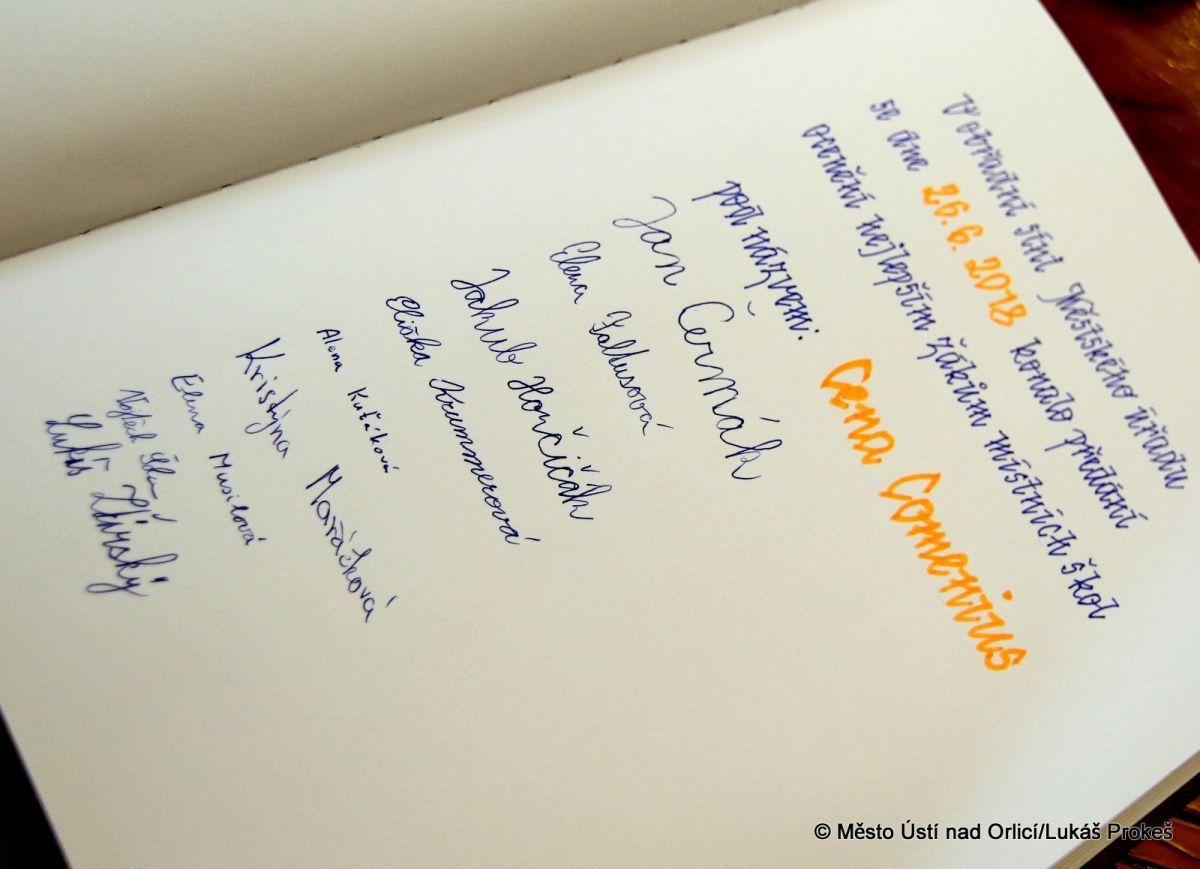 V obřadní síni Městského úřadu
se dne 26.6. 2018 konalo předání
ocenění nejlepším žákům místních škol
pod názvem: Cena Comenius
Jan Čermák
Elena Faltusová
Jakub Horčičák
Eliška Krummerová
Alena Kuťáková
Kristýna Moráčková
Elena Musilová
Vojtěch
Lukáš Žďárský
© Město Ústí nad Orlicí/Lukáš Prokeš